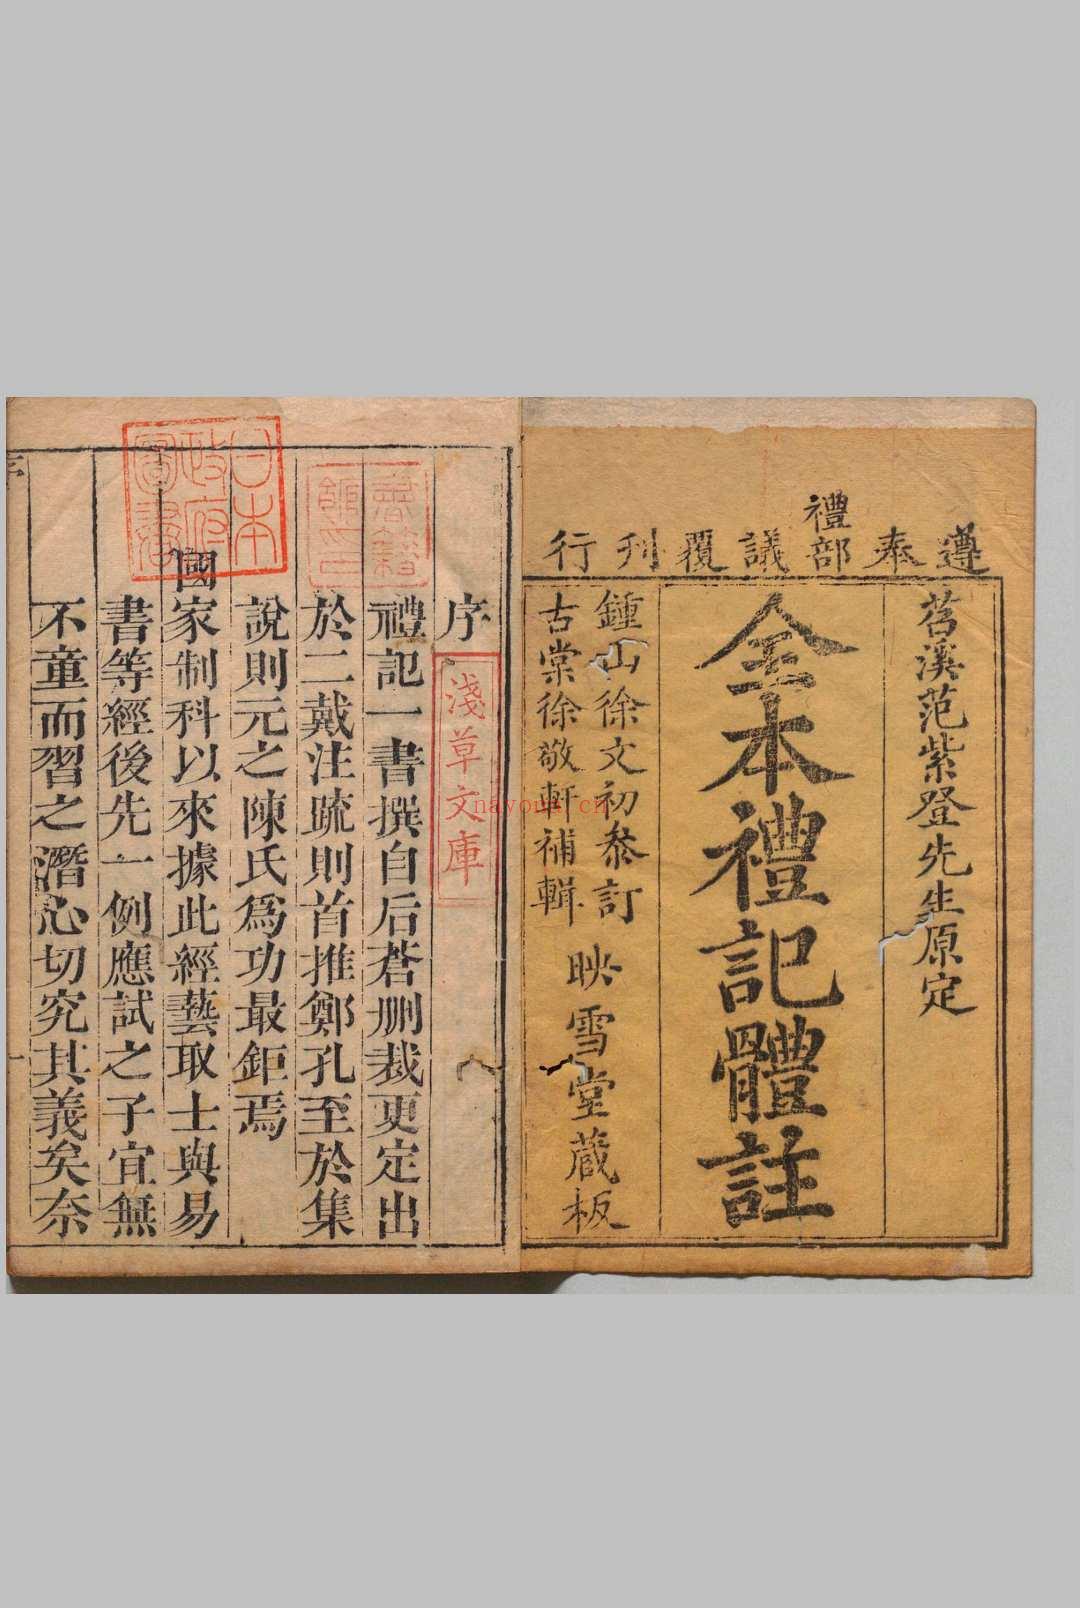 遵奉禮部議覆刋行
苕溪范紫登先生原定
全本禮記體註
鍾山徐文初參訂
古棠徐敬軒補輯
映雪堂蔵板
序
淺草文庫
禮記一書撰自后蒼删裁更定出
於二戴注疏則首推鄭孔至於集
說則元之陳氏爲功最鉅焉
國家制科以來據此經藝取士與易
書等經後先一例應試之子宜無
不童而習之潛心切究其義矣奈
日本政府圖書
nayona.cn